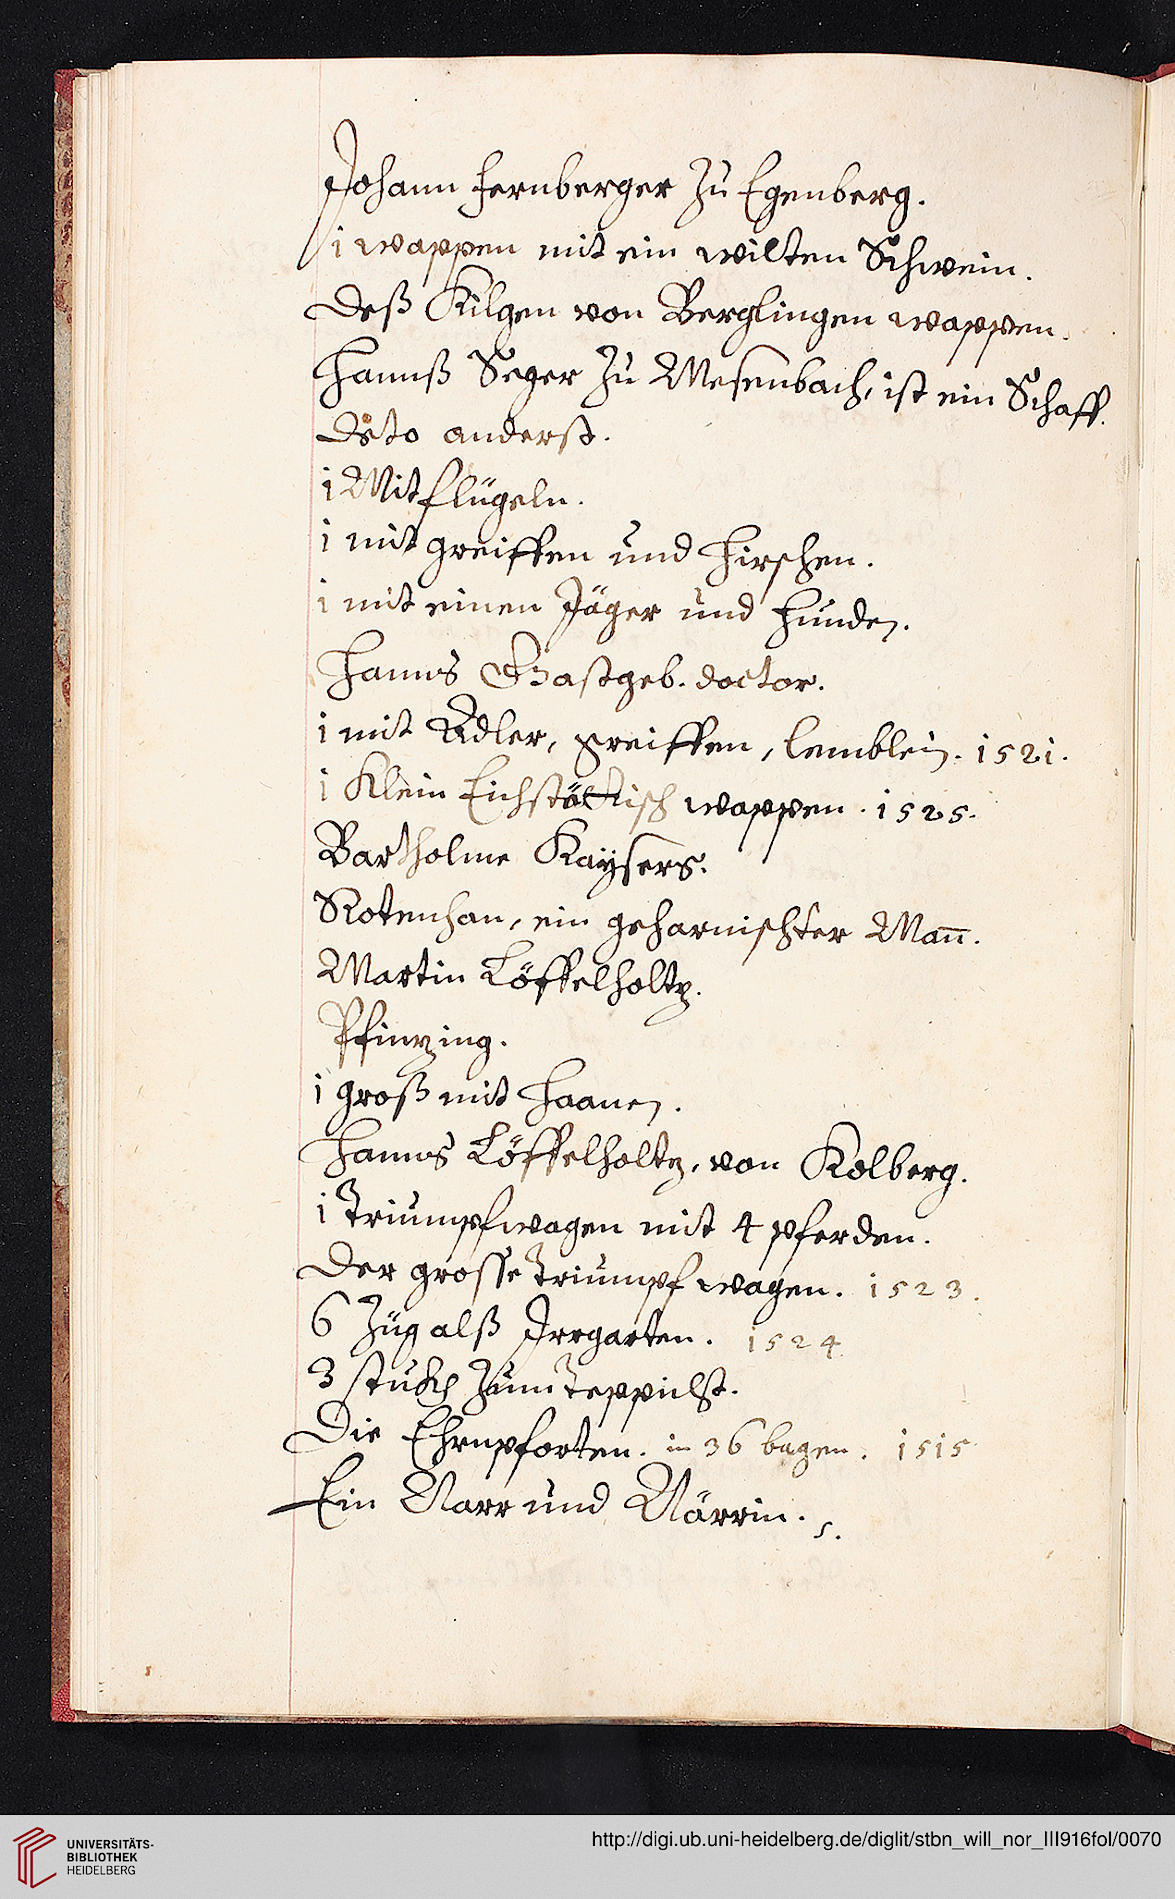 Johann Fernberger zu Egenberg.
1 wappen mit ein wilten Schwein.
Deß Kilgen von Berglingen wappen.
Hannß Seger zu Mesenbach, ist ein Schaff.
Dito anderst.
1 Mit flügeln.
1 mit greiffen und Hirschen.
1 mit einen Jäger und Hunden.
Hanns Gastgeb. doctor.
1 mit Adler, greiffen, lemblein. 1521.
1 Klein Eichstättisch wappen. 1525.
Bartholme Kaysers.
Rotenhan, ein geharnischter Mañ.
Martin Löffelholtz.
Pfintzing.
1 groß mit Haanen.
Hanns Löffelholtz, von Kolberg.
1 Triumpfwagen mit 4 pferden.
Der grosse Triumpf wagen. 1523.
6 Züg alß Irrgarten. 1524.
3 stuckh zum Teppichst.
Die Ehrnpforten. in 36 bagen. 1515
Ein Narr und Närrin. s.
UNIVERSITÄTS-
BIBLIOTHEK
HEIDELBERG
http://digi.ub.uni-heidelberg.de/diglit/stbn_will_nor_III916fol/0070